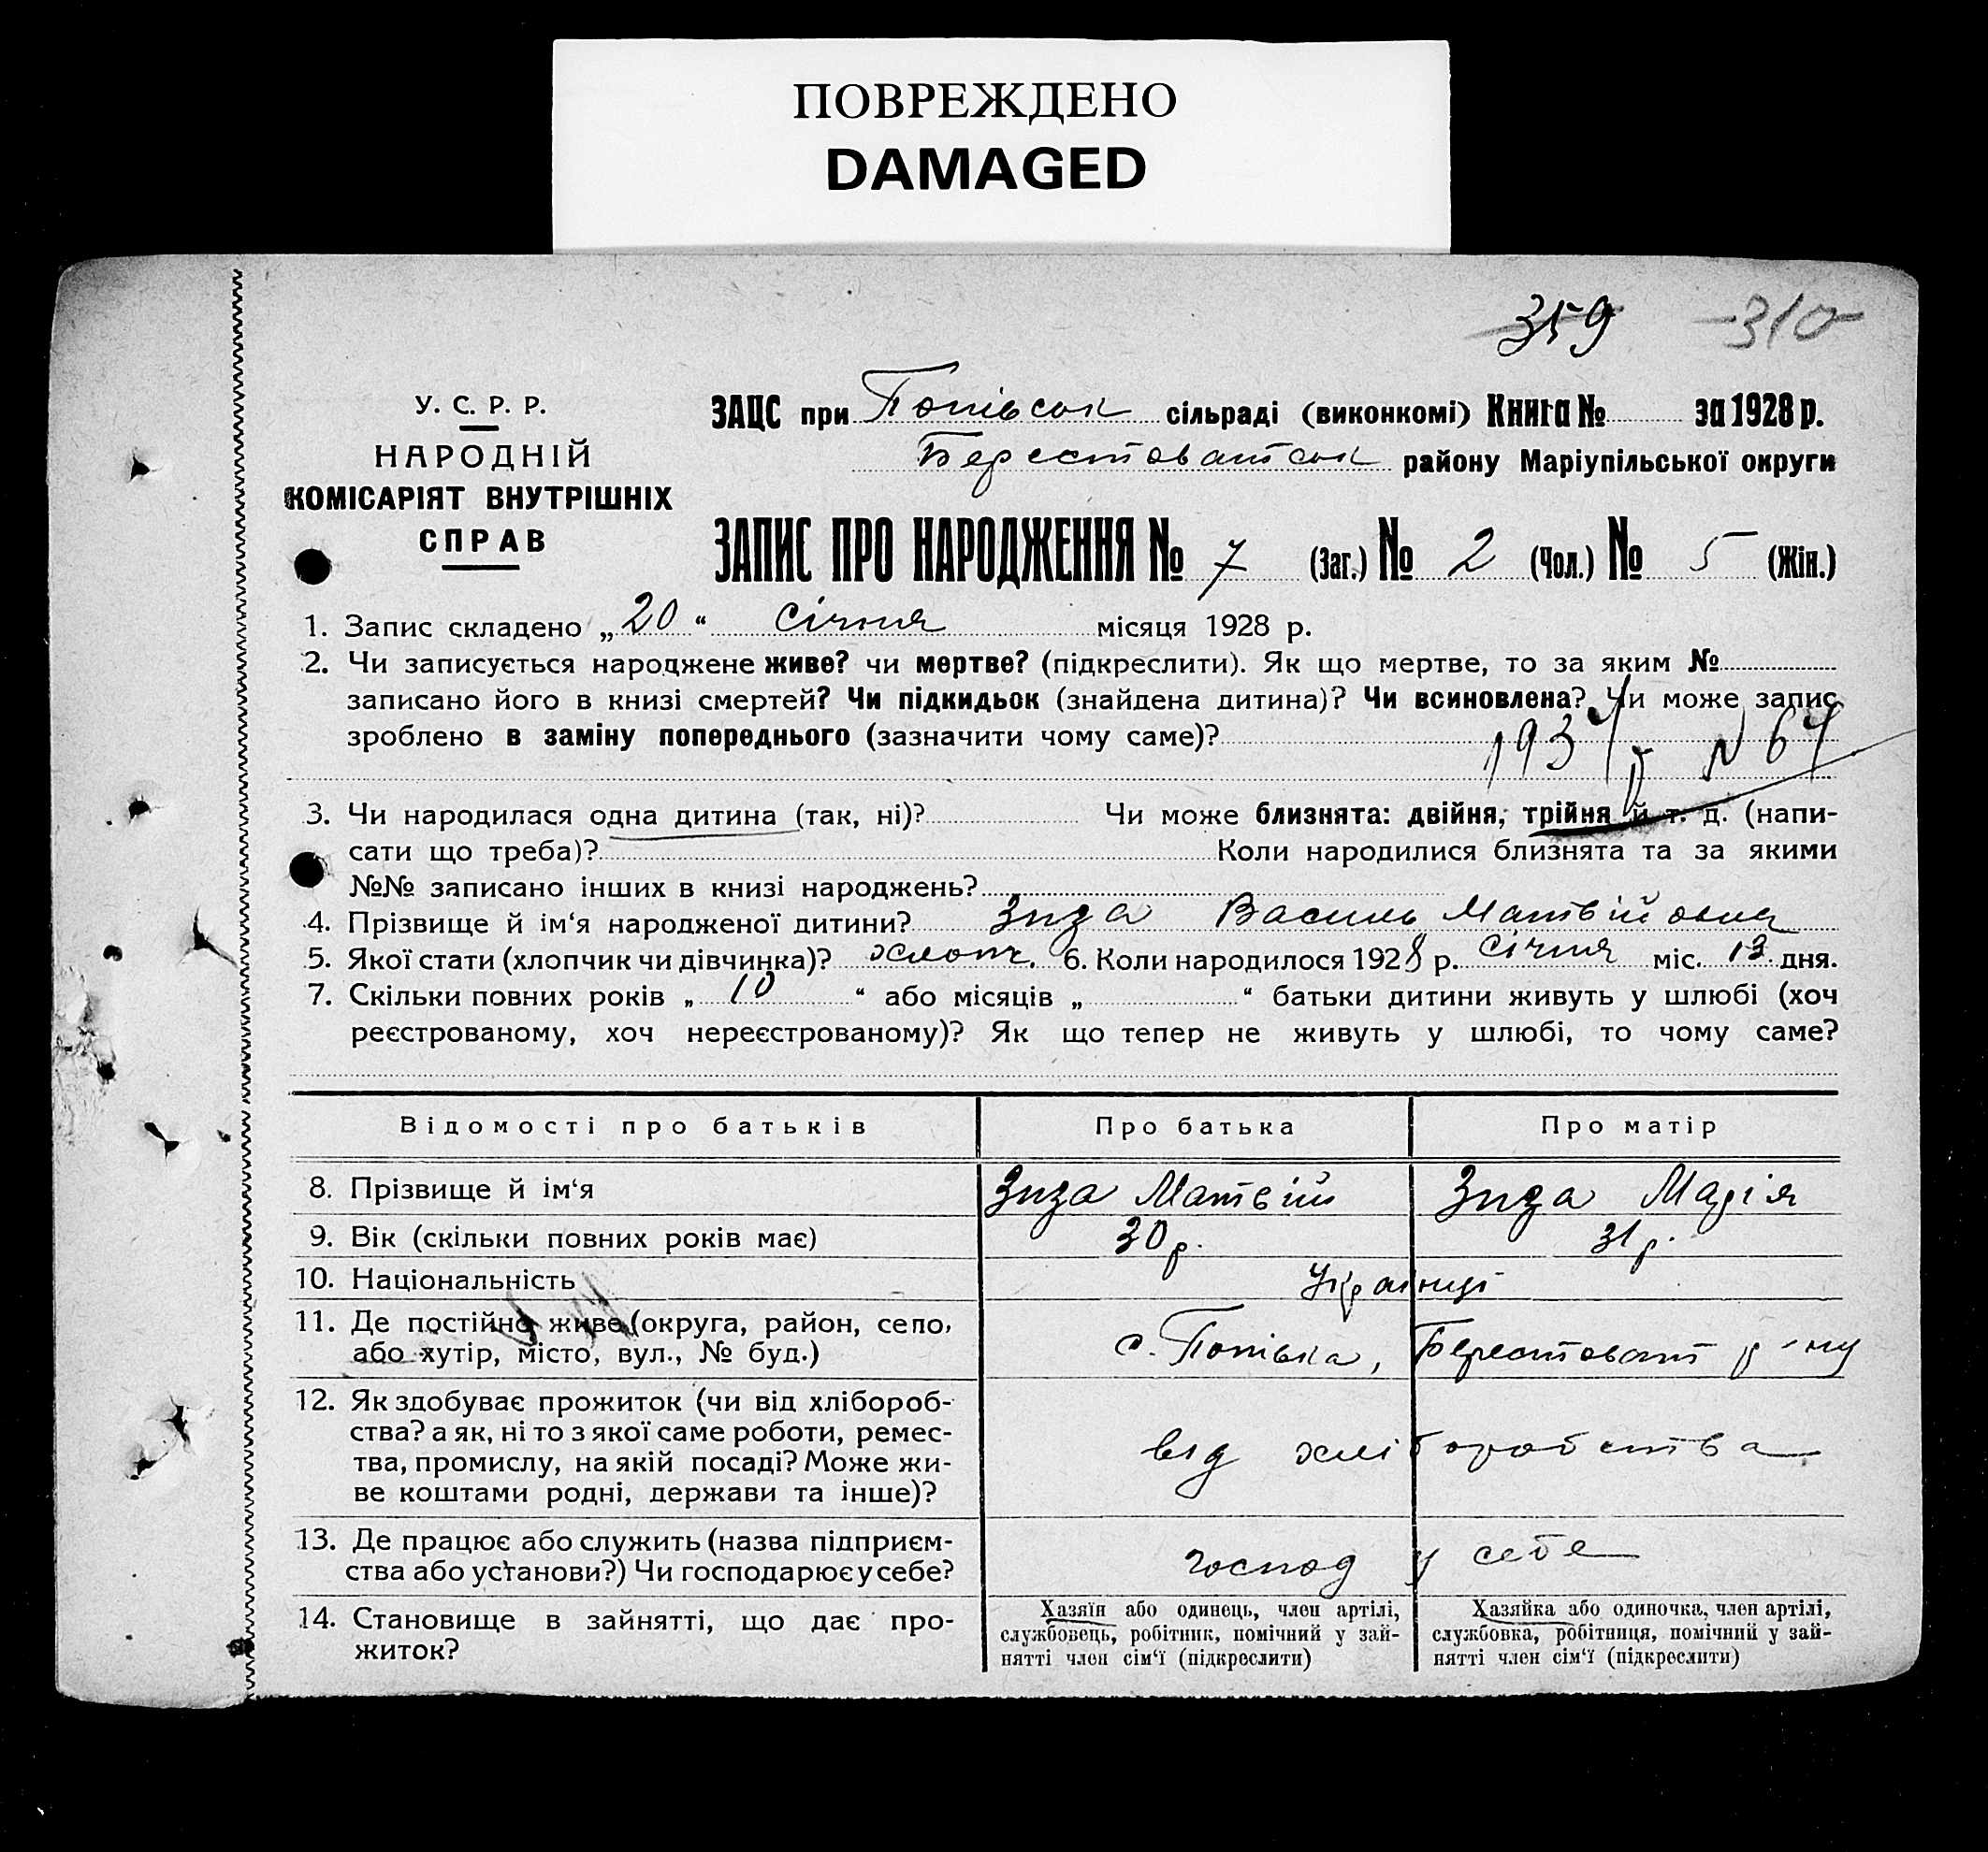 ПОВРЕЖДЕНО
DAMAGED
359 310
У. С. Р. Р.
НАРОДНІЙ
КОМІСАРІЯТ ВНУТРІШНІХ
СПРАВ
ЗАЦС при Попівськ сільраді (виконкомі) Книга № за 1928 р.
Берестоватськ району Маріупільської округи
ЗАПИС ПРО НАРОДЖЕННЯ № 7 (Заг.) № 2 (Чол.) № 5 (Жін.)
1. Запис складено „ 20 “ Січня місяця 1928 р.
2. Чи записується народжене живе? чи мертве? (підкреслити). Як що мертве, то за яким №
записано його в книзі смертей? Чи підкидьок (знайдена дитина)? Чи всиновлена? Чи може запис
зроблено в заміну попереднього (зазначити чому саме)?
1934 р N 64
3. Чи народилася одна дитина (так, ні)? Чи може близнята: двійня, трійня й т. д. (напи-
сати що треба)? Коли народилися близнята та за якими
№№ записано інших в книзі народжень?
4. Прізвище й ім‘я народженої дитини? Зиза Василь Матвійович
5. Якої стати (хлопчик чи дівчинка)? хлопч. 6. Коли народилося 1928 р. Січня міс. 13 дня.
7. Скільки повних років „ 10 “ або місяців „ “ батьки дитини живуть у шлюбі (хоч
реєстрованому, хоч нереєстрованому)? Як що тепер не живуть у шлюбі, то чому саме?
Відомості про батьків Про батька Про матір
8. Прізвище й ім‘я Зиза Матвій Зиза Марія
9. Вік (скільки повних років має) 30 р. 31 р.
10. Національність Українці
11. Де постійно живе (округа, район, село,
або хутір, місто, вул., № буд.) с. Попівка, Берестоват р-ну
12. Як здобуває прожиток (чи від хлібороб-
ства? а як, ні то з якої саме роботи, ремес-
тва, промислу, на якій посаді? Може жи-
ве коштами родні, держави та інше)? від хліборобства
13. Де працює або служить (назва підприєм-
ства або установи?) Чи господарює у себе? господ у себе
14. Становище в зайнятті, що дає про-
житок?
Хазяїн або одинець, член артілі,
службовець, робітник, помічний у зай-
нятті член сім‘ї (підкреслити)
Хазяйка або одиночка, член артілі,
службовка, робітниця, помічний у зай-
нятті член сім‘ї (підкреслити)